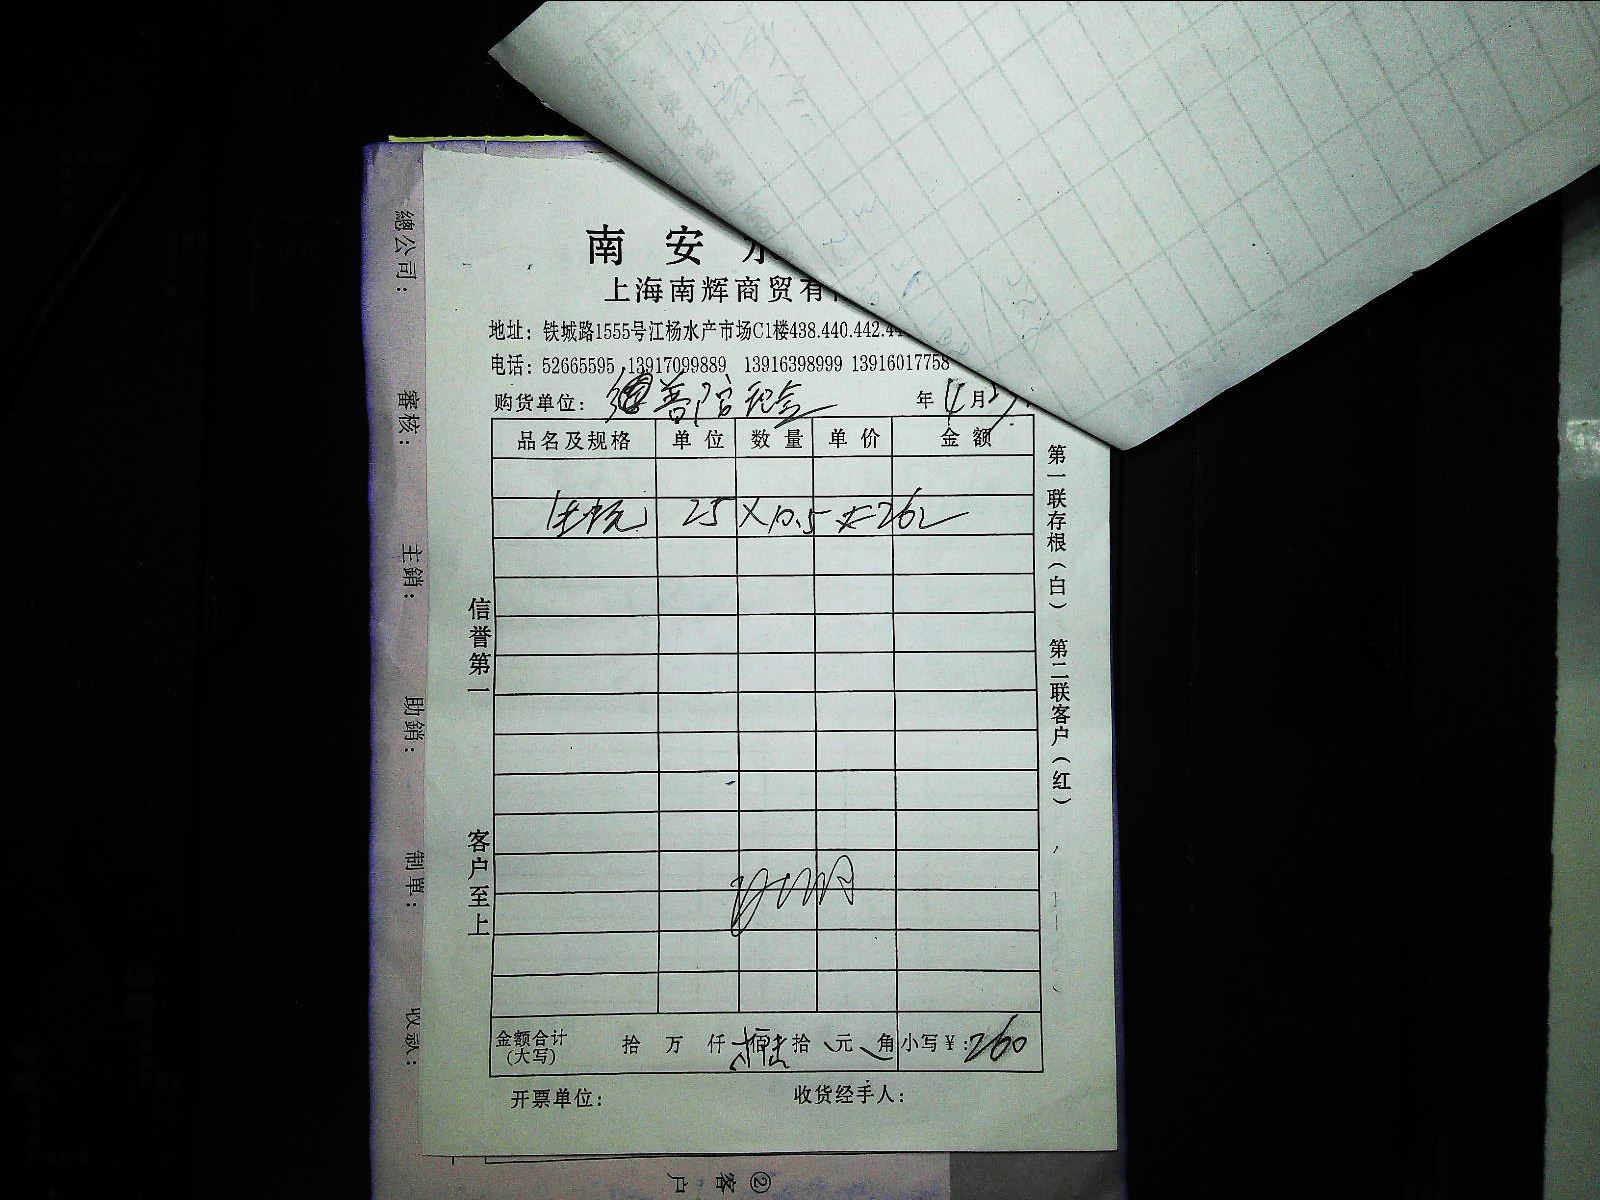 南 安
上海南辉商贸有
地址：铁城路1555号江杨水产市场C1楼438.440.442.44
电话：52665595 13917099889 13916398999 13916017758
购货单位：
年 4月
品名及规格 单位 数量 单价 金额
25 × 10.5 = 262
金额合计
(大写)
拾 万 仟 佰 拾 元 角 小写￥：260
开票单位： 收货经手人：
信誉第一
客户至上
第一联存根（白） 第二联客户（红）
總公司：
審核：
主銷：
助銷：
制單：
收款：
②客户